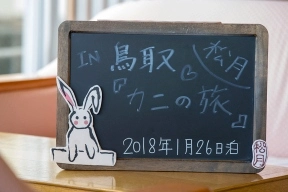 IN 鳥取 松月
『カニの旅』
2018年1月26日泊
松月